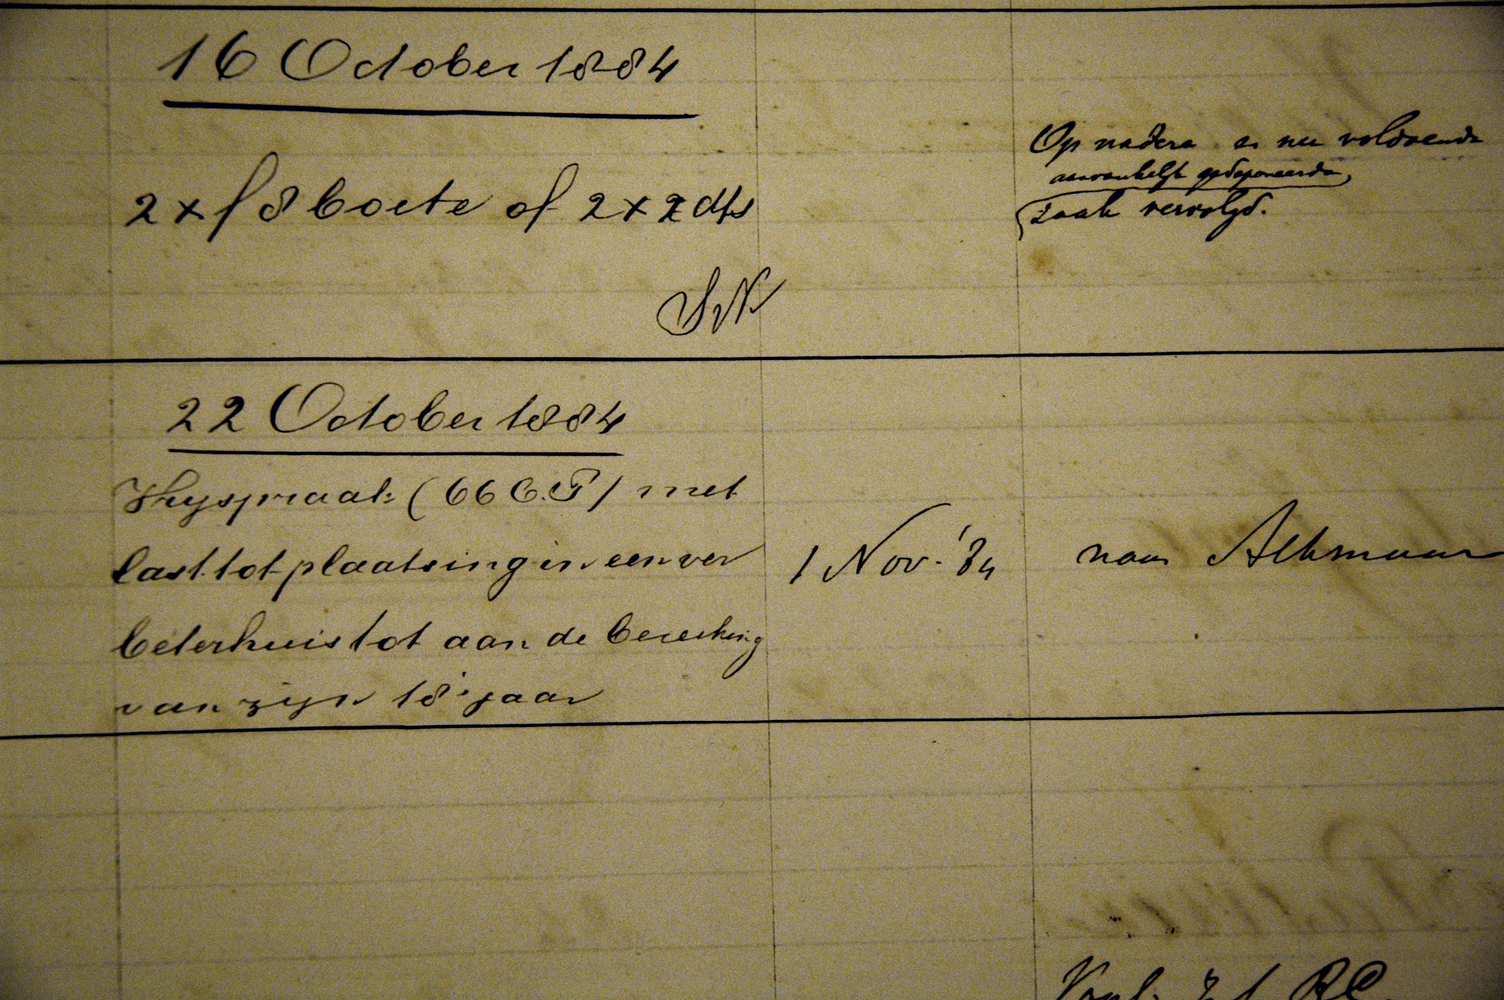 16 October 1884
2 x f 8 boete of 2 x 2 dgs
Op nadere en nu voldoende
aanvankelijk gedeponeerde
zaak vervolgd.
SN
22 October 1884
Vryspraak (66 C.P) met
last tot plaatsing in een ver
beterhuis tot aan de bereiking
van zijn 18e jaar
1 Nov. '84
naar Alkmaar